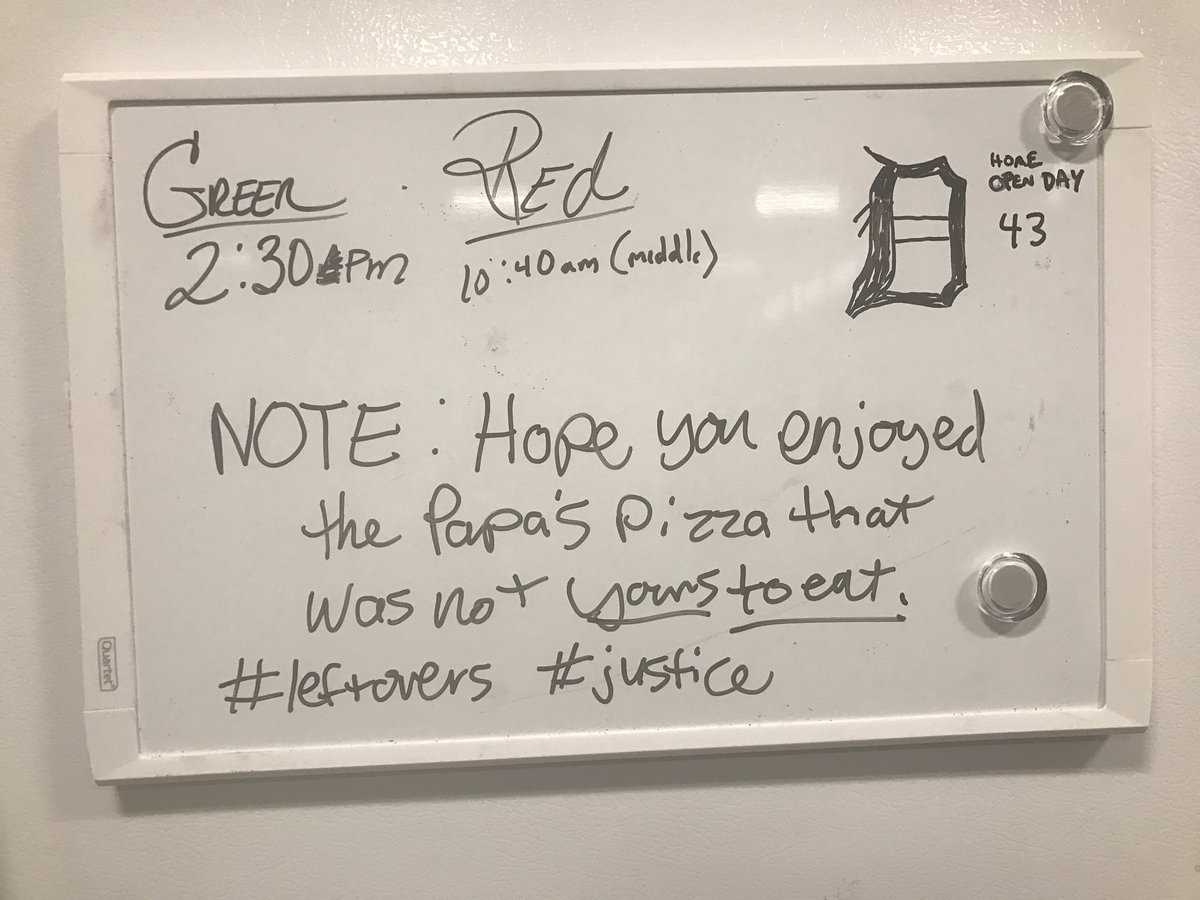 GREEN
2:30 Pm
RED
10:40 am (middle)
D
HOME
OPEN DAY
43
NOTE: Hope you enjoyed
the Papa's Pizza that
was not yours to eat.
#leftovers #justice
Quartet